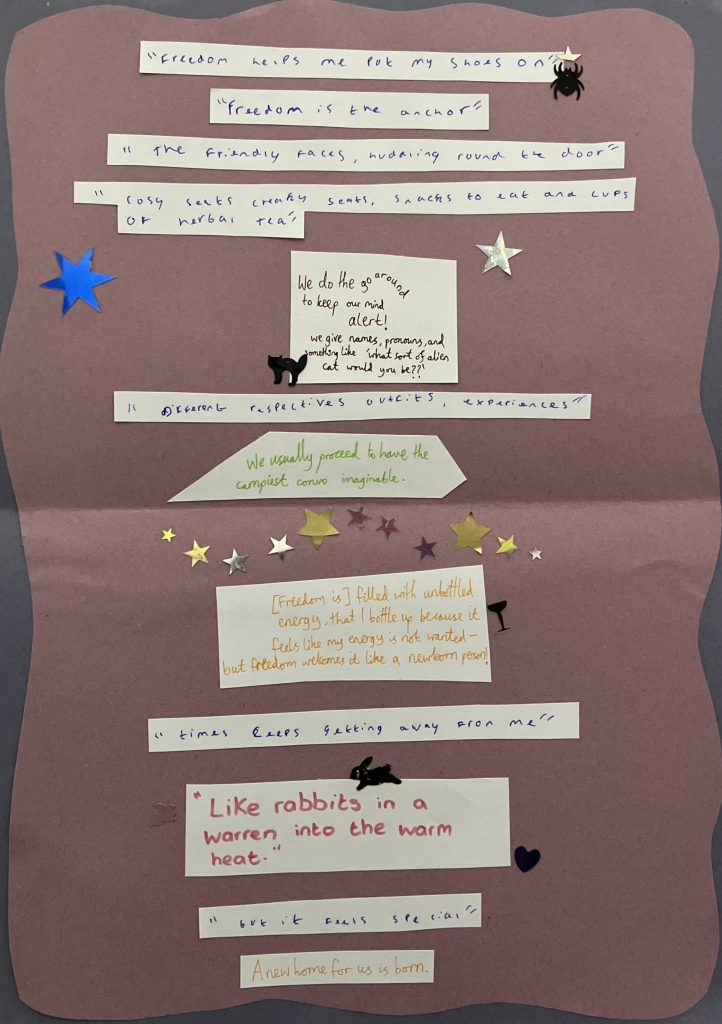 "Freedom helps me put my shoes on"
"Freedom is the anchor"
"The friendly faces, huddling round the door"
"cosy seats creaky seats, snacks to eat and cups
of herbal tea"
We do the go around
to keep our mind
alert!
we give names, pronouns, and
something like 'what sort of alien
cat would you be??'
"Different respectives outfits, experiences"
We usually proceed to have the
campiest convo imaginable.
[Freedom is] filled with unbottled
energy, that I bottle up because it
feels like my energy is not wanted –
but freedom welcomes it like a newborn person!
"times keeps getting away from me"
"Like rabbits in a
warren into the warm
heat."
"but it feels special"
A new home for us is born.